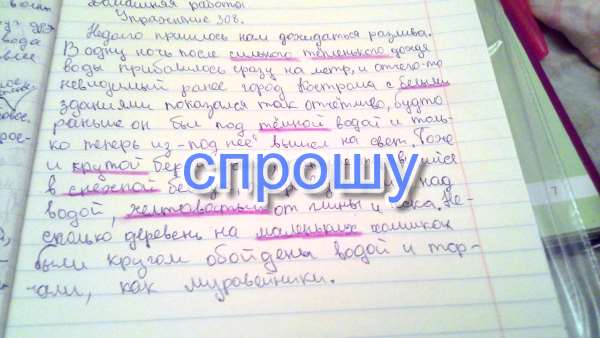 Домашняя работа
Упражнение 308.
Недолго пришлось нам дожидаться разлива.
В одну ночь после сильного тёпленького дождя
воды прибавилось сразу на метр, и отчего-то
невидимый ранее город Кострома с белыми
зданиями показался так отчётливо, будто
раньше он был под тёмной водой и толь-
ко теперь из-под неё вышел на свет. Тоже
и крутой
в снежной над
водой, желтоватый от глины и песка. Не-
сколько деревень на маленьких холмиках
были кругом обойдены водой и тор-
чали, как муравейники.
спрошу